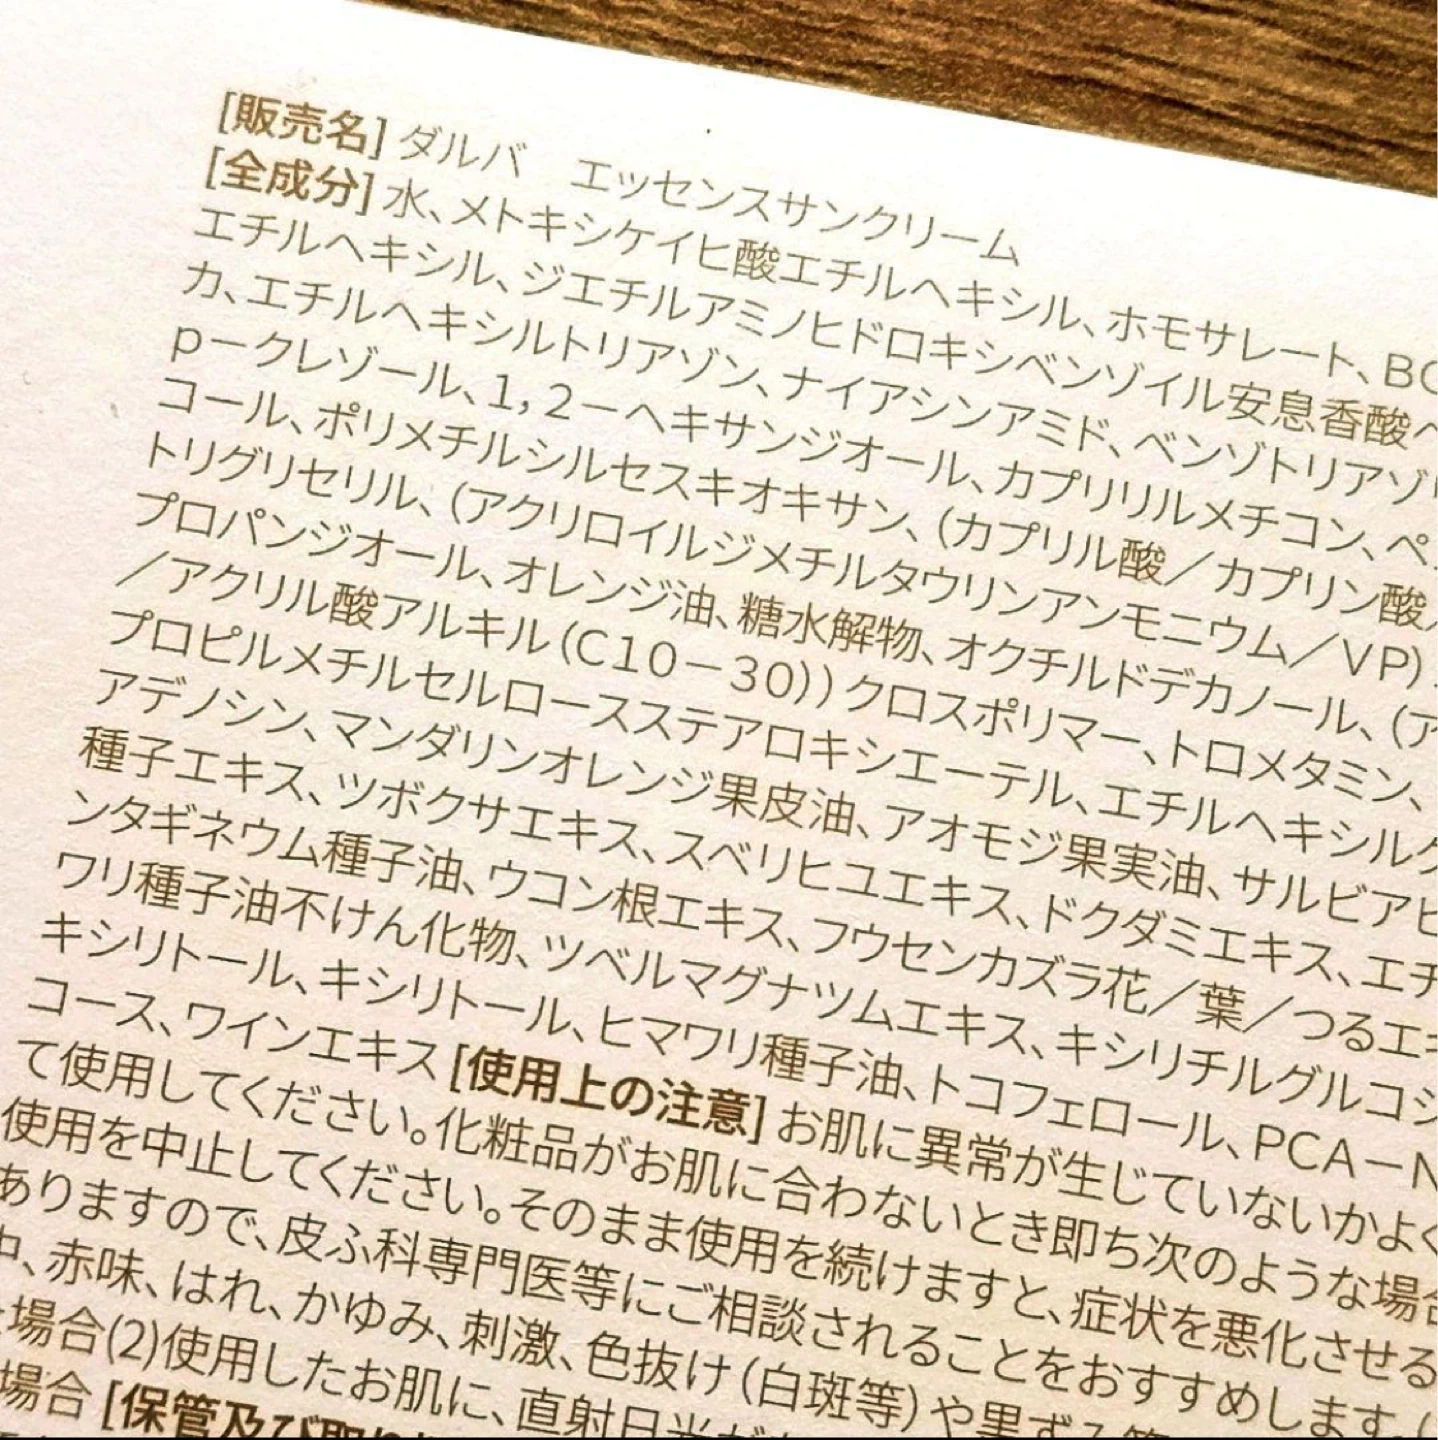 [販売名] ダルバ　エッセンスサンクリーム
[全成分] 水、メトキシケイヒ酸エチルヘキシル、ホモサレート、BC
エチルヘキシル、ジエチルアミノヒドロキシベンゾイル安息香酸ヘ
カ、エチルヘキシルトリアゾン、ナイアシンアミド、ベンゾトリアゾリ
p－クレゾール、1，2－ヘキサンジオール、カプリリルメチコン、ペ
コール、ポリメチルシルセスキオキサン、（カプリル酸／カプリン酸／
トリグリセリル、（アクリロイルジメチルタウリンアンモニウム／VP）
プロパンジオール、オレンジ油、糖水解物、オクチルドデカノール、（ア
／アクリル酸アルキル（C10－30））クロスポリマー、トロメタミン、
プロピルメチルセルロースステアロキシエーテル、エチルヘキシルグ
アデノシン、マンダリンオレンジ果皮油、アオモジ果実油、サルビアヒ
種子エキス、ツボクサエキス、スベリヒユエキス、ドクダミエキス、エチ
ンタギネウム種子油、ウコン根エキス、フウセンカズラ花／葉／つるエキ
ワリ種子油不けん化物、ツベルマグナツムエキス、キシリチルグルコシ
キシリトール、キシリトール、ヒマワリ種子油、トコフェロール、PCA－N
コース、ワインエキス [使用上の注意] お肌に異常が生じていないかよく
て使用してください。化粧品がお肌に合わないとき即ち次のような場合
使用を中止してください。そのまま使用を続けますと、症状を悪化させる
ありますので、皮ふ科専門医等にご相談されることをおすすめします。（
中、赤味、はれ、かゆみ、刺激、色抜け（白斑等）や黒ずみ等
場合(2)使用したお肌に、直射日光が
場合 [保管及び取り